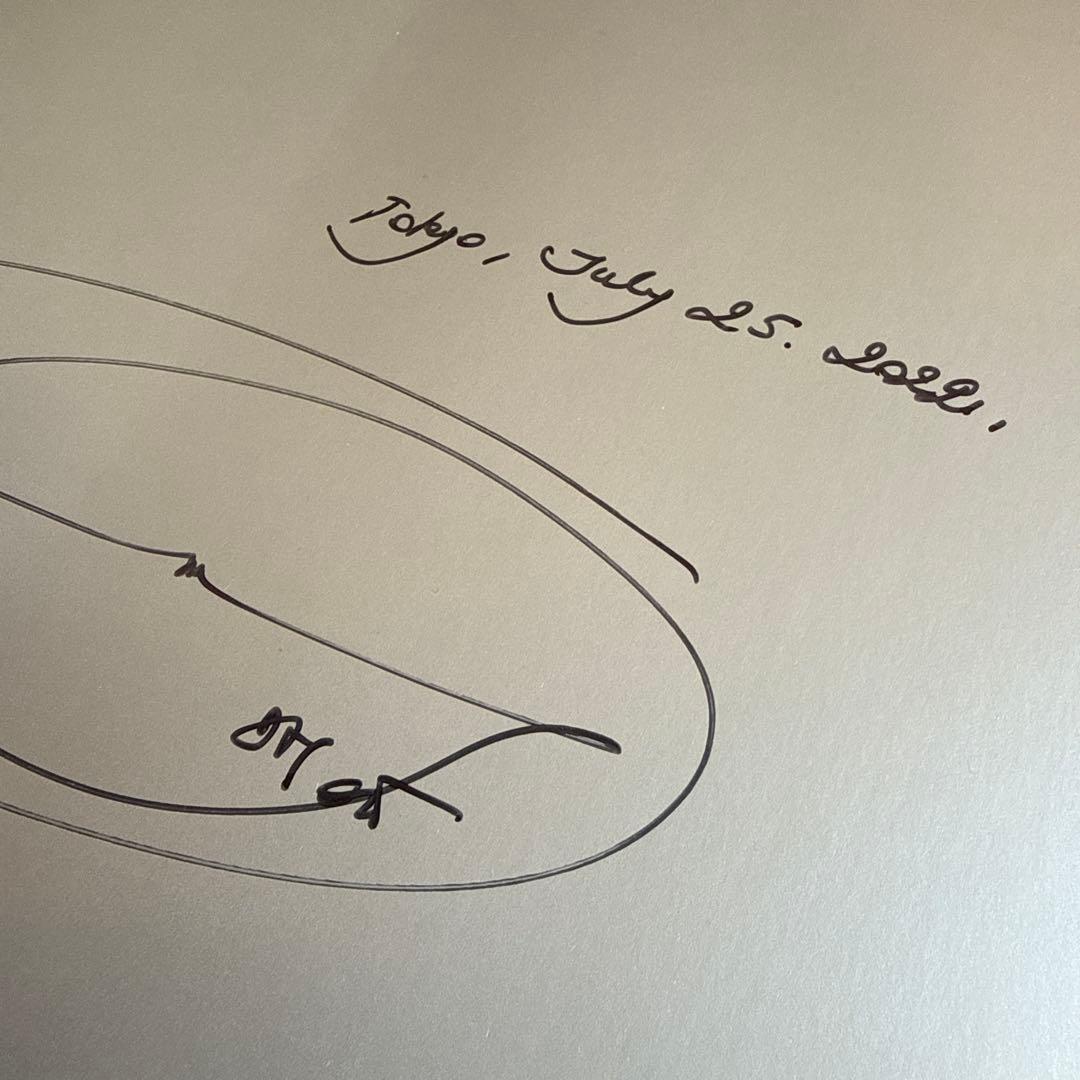 Tokyo, July 25. 2022.